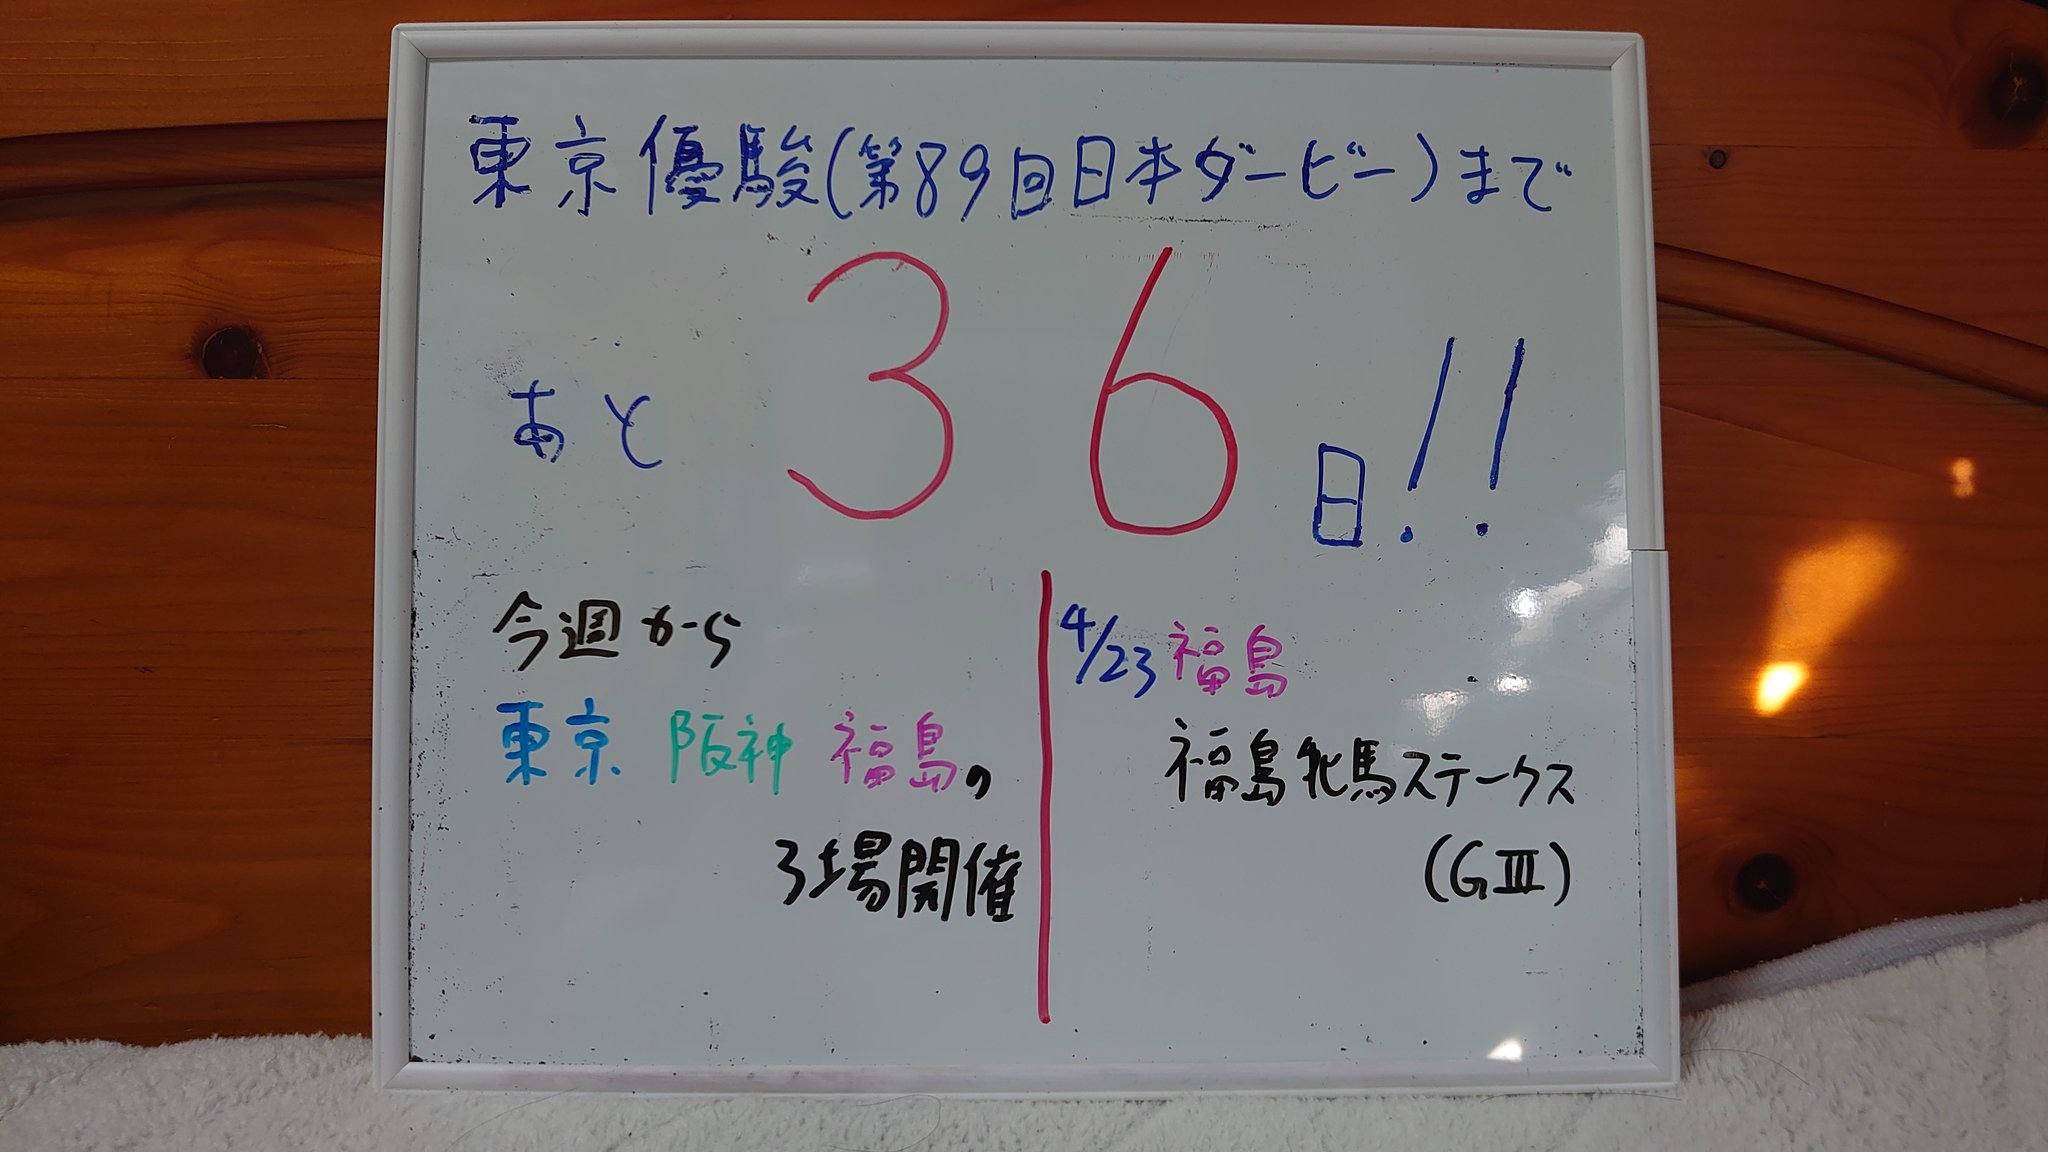 東京優駿(第89回日本ダービー)まで
あと 36日!!
今週から
東京 阪神 福島の
3場開催
4/23 福島
福島牝馬ステークス
(GⅢ)